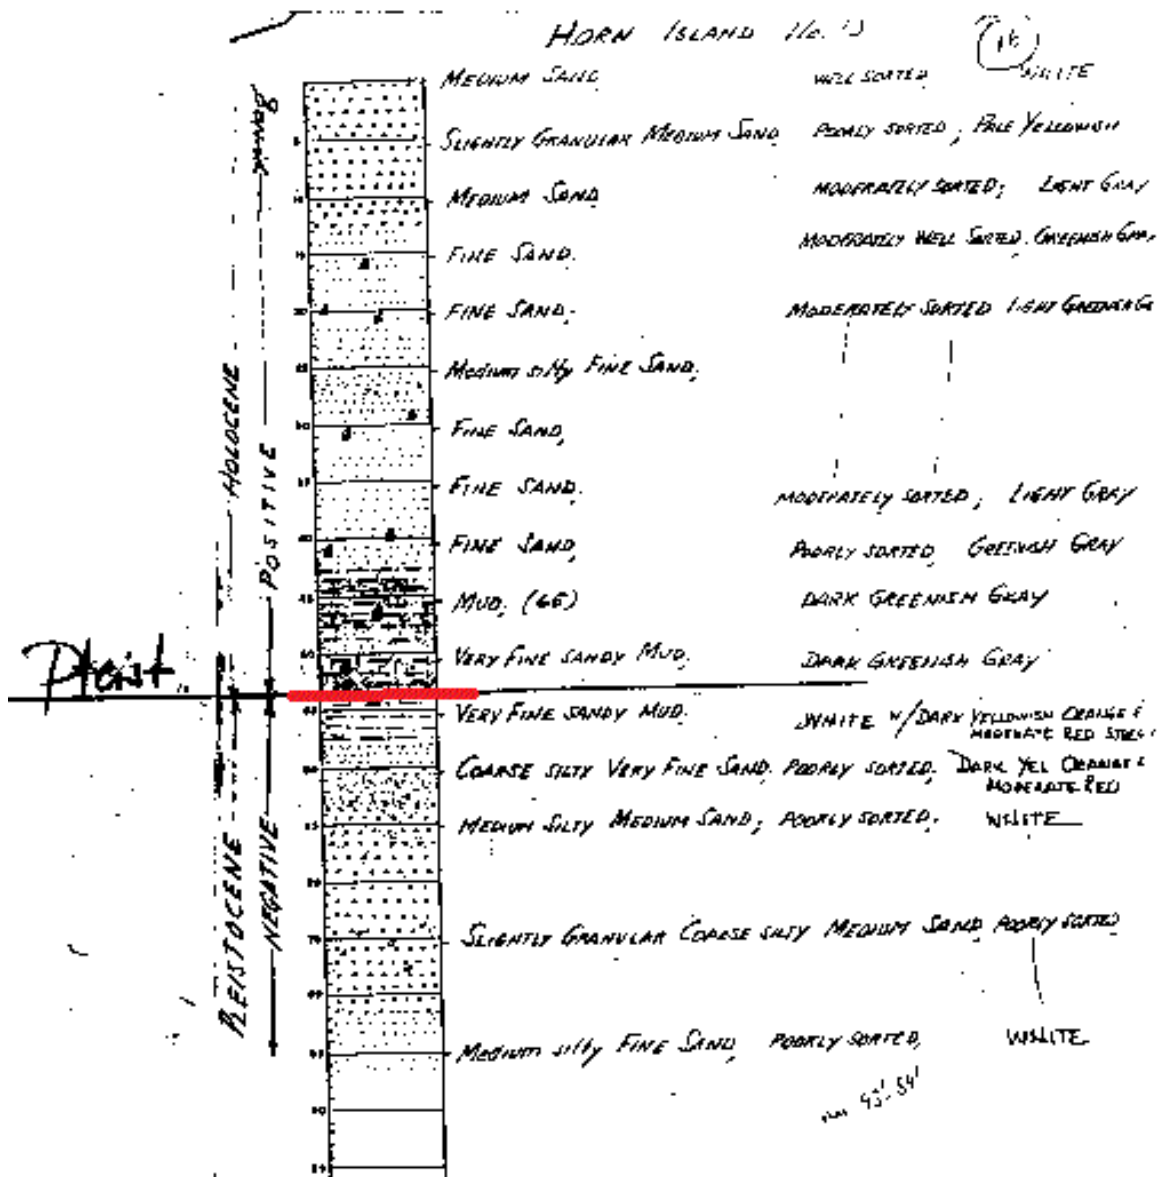 HORN ISLAND No.
16
MEDIUM SAND, WELL SORTED, WHITE
SLIGHTLY GRANULAR MEDIUM SAND, POORLY SORTED, PALE YELLOWISH
5
MEDIUM SAND, MODERATELY SORTED, LIGHT GRAY
10
FINE SAND. MODERATELY WELL SORTED. GREENISH GRAY
15
FINE SAND, MODERATELY SORTED LIGHT GREENISH GR
20
MEDIUM SILTY FINE SAND,
25
FINE SAND,
30
FINE SAND. MODERATELY SORTED, LIGHT GRAY
35
FINE SAND, POORLY SORTED, GREENISH GRAY
40
MUD, (65) DARK GREENISH GRAY
45
VERY FINE SANDY MUD, DARK GREENISH GRAY
50
HOLOCENE
POSITIVE
Pleist.
VERY FINE SANDY MUD. WHITE W/DARK YELLOWISH ORANGE &
MODERATE RED
55
COARSE SILTY VERY FINE SAND. POORLY SORTED, DARK YEL ORANGE &
MODERATE RED
60
MEDIUM SILTY MEDIUM SAND, POORLY SORTED, WHITE
65
SLIGHTLY GRANULAR COARSE SILTY MEDIUM SAND POORLY SORTED
PLEISTOCENE
NEGATIVE
MEDIUM SILTY FINE SAND, POORLY SORTED, WHITE
90